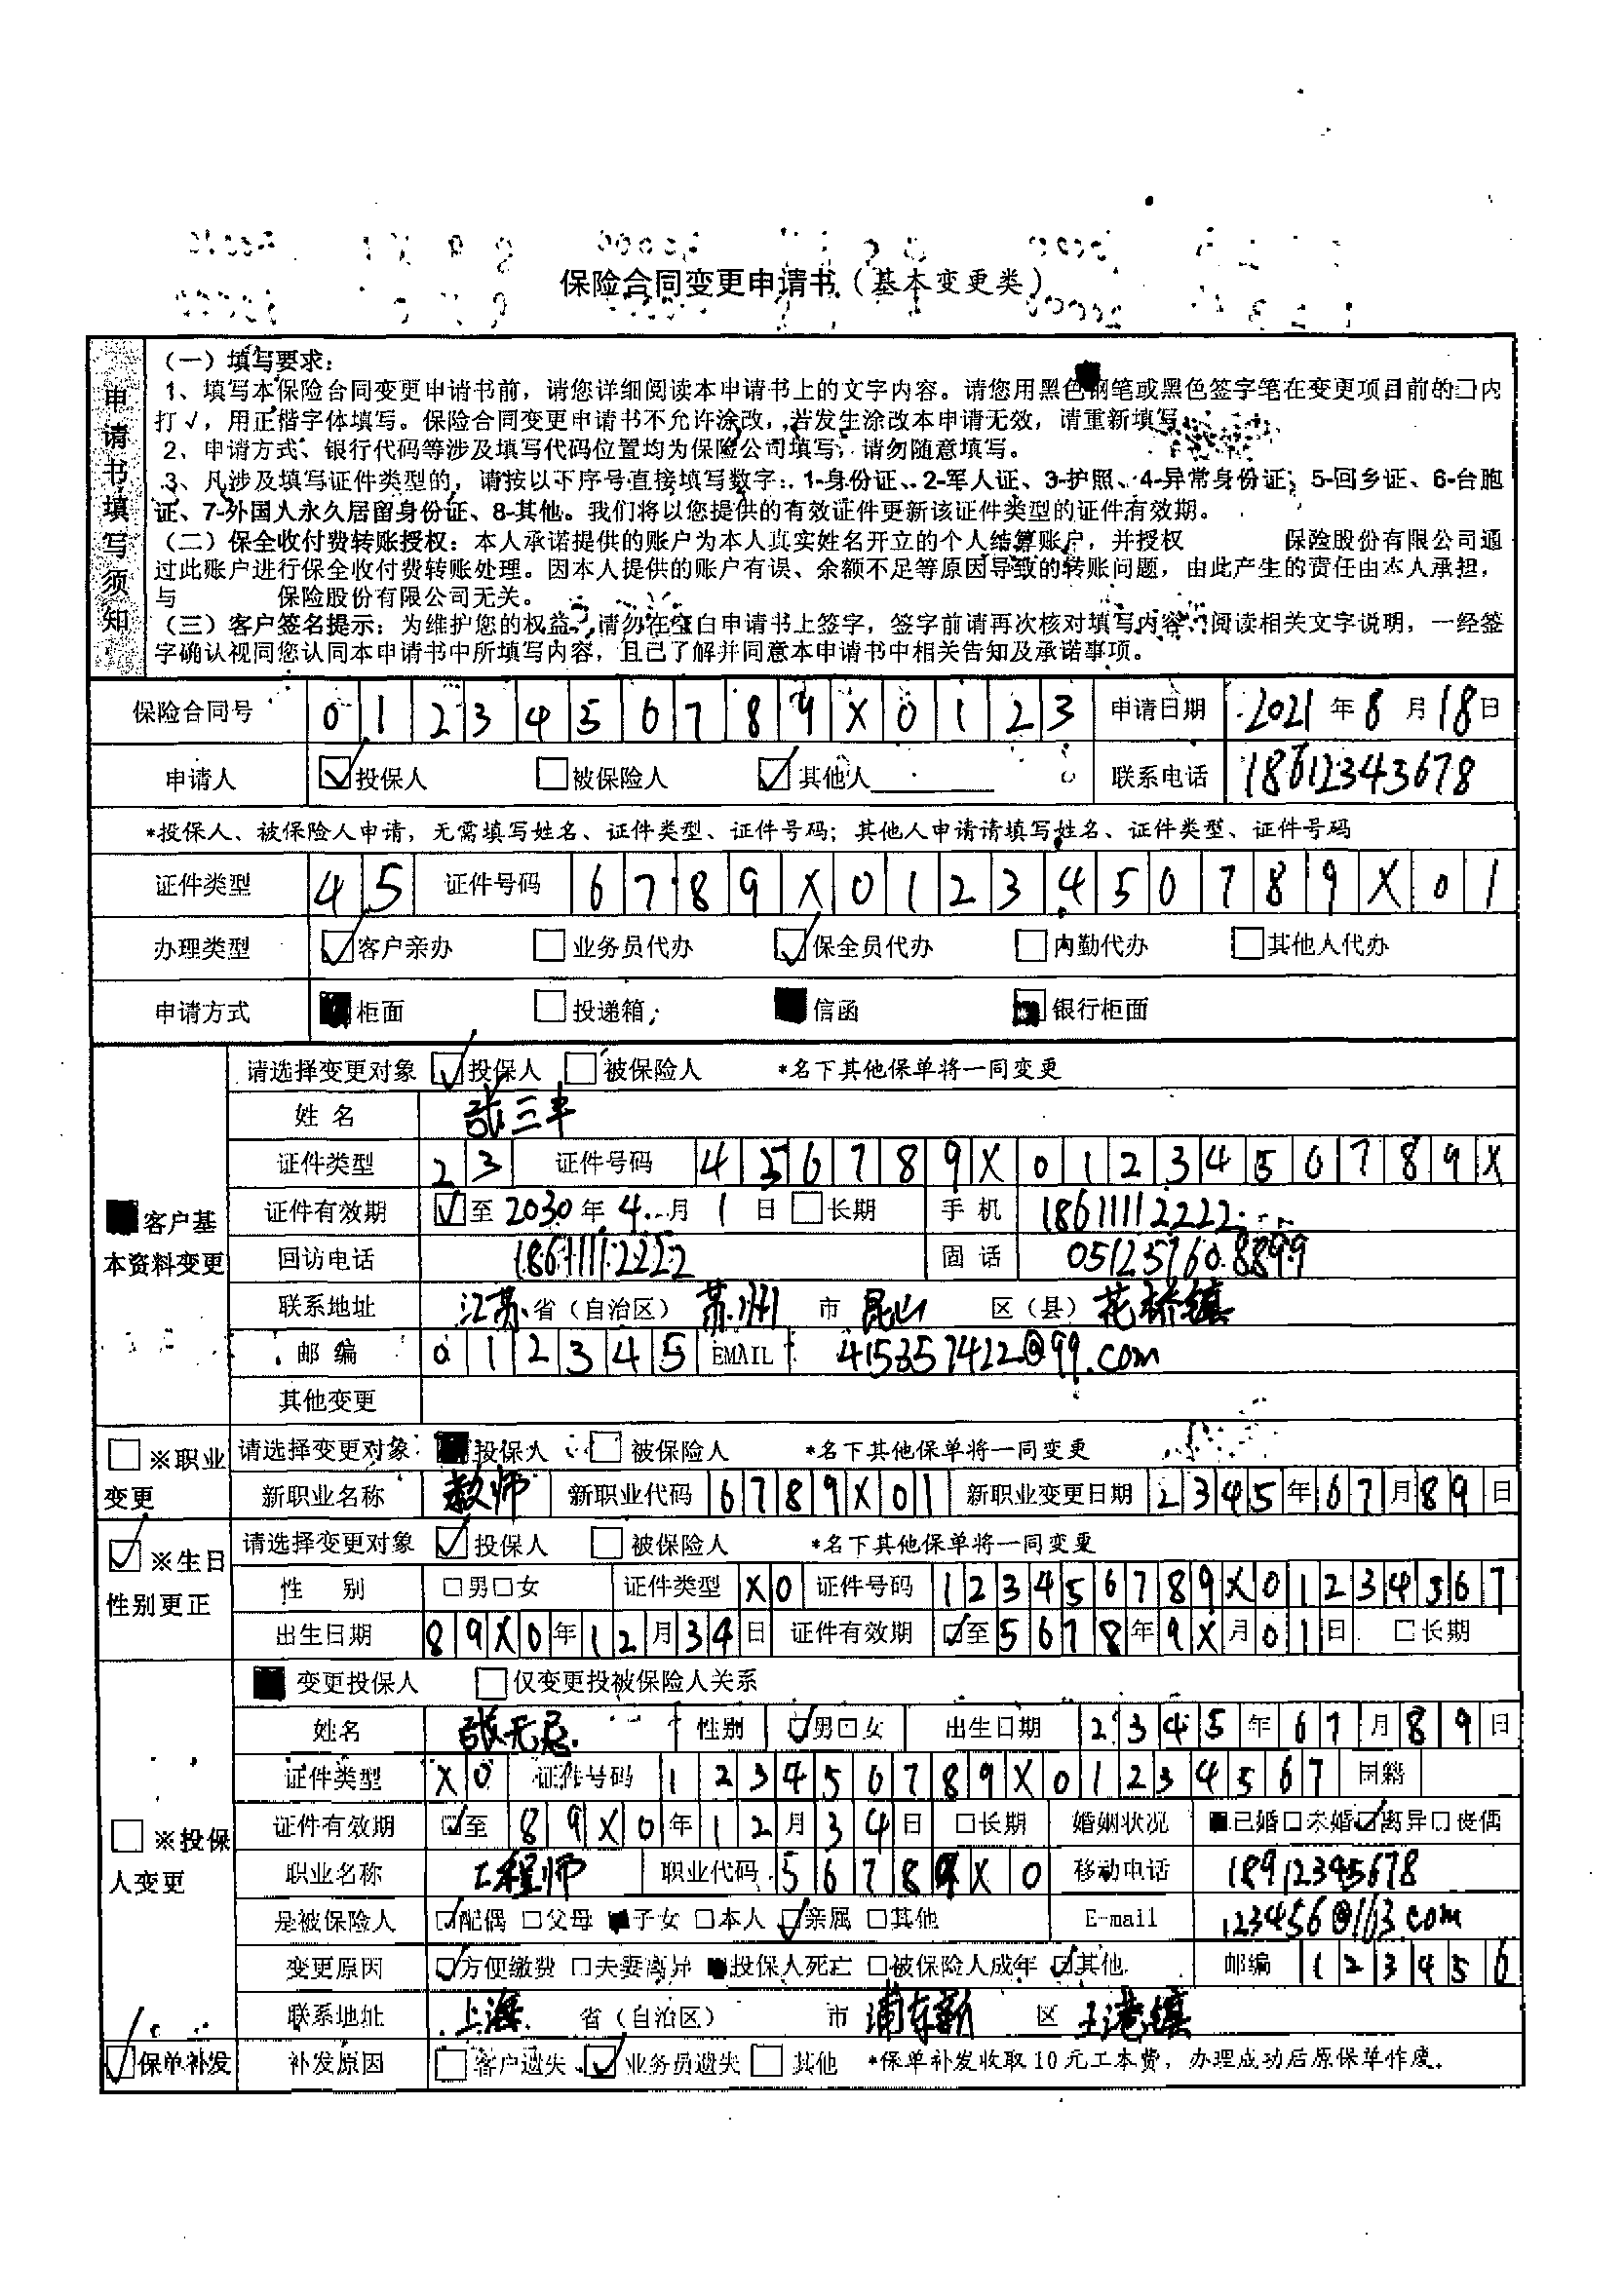 保险合同变更申请书（基本变更类）
申请书填写须知
（一）填写要求：
1、填写本保险合同变更申请书前，请您详细阅读本申请书上的文字内容。请您用黑色钢笔或黑色签字笔在变更项目前的□内
打√，用正楷字体填写。保险合同变更申请书不允许涂改，若发生涂改本申请无效，请重新填写。
2、申请方式、银行代码等涉及填写代码位置均为保险公司填写，请勿随意填写。
3、凡涉及填写证件类型的，请按以下序号直接填写数字：1-身份证、2-军人证、3-护照、4-异常身份证、5-回乡证、6-台胞
证、7-外国人永久居留身份证、8-其他。我们将以您提供的有效证件更新该证件类型的证件有效期。
（二）保全收付费转账授权：本人承诺提供的账户为本人真实姓名开立的个人结算账户，并授权 保险股份有限公司通
过此账户进行保全收付费转账处理。因本人提供的账户有误、余额不足等原因导致的转账问题，由此产生的责任由本人承担，
与 保险股份有限公司无关。
（三）客户签名提示：为维护您的权益，请勿在空白申请书上签字，签字前请再次核对填写内容，阅读相关文字说明，一经签
字确认视同您认同本申请书中所填写内容，且已了解并同意本申请书中相关告知及承诺事项。
保险合同号 0 1 2 3 4 5 6 7 8 9 X 0 1 2 3 申请日期 2021 年 8 月 18 日
申请人 ☑投保人 □被保险人 ☑其他人 联系电话 18612343678
*投保人、被保险人申请，无需填写姓名、证件类型、证件号码；其他人申请请填写姓名、证件类型、证件号码
证件类型 4 5 证件号码 6 7 8 9 X 0 1 2 3 4 5 0 7 8 9 X 0 1
办理类型 ☑客户亲办 □业务员代办 ☑保全员代办 □内勤代办 □其他人代办
申请方式 ■柜面 □投递箱 ■信函 ■银行柜面
■客户基本资料变更
请选择变更对象 ☑投保人 □被保险人 *名下其他保单将一同变更
姓名 张三丰
证件类型 2 3 证件号码 4 5 6 7 8 9 X 0 1 2 3 4 5 6 7 8 9 X
证件有效期 ☑至 2030 年 4 月 1 日 □长期 手机 18611112222
回访电话 18611112222 固话 051257608899
联系地址 江苏 省（自治区） 苏州 市 昆山 区（县） 花桥镇
邮编 0 1 2 3 4 5 EMAIL 415357422@99.com
其他变更
□※职业变更
请选择变更对象 ■投保人 □被保险人 *名下其他保单将一同变更
新职业名称 教师 新职业代码 6 7 8 9 X 0 1 新职业变更日期 2 3 4 5 年 6 7 月 8 9 日
☑※生日性别更正
请选择变更对象 ☑投保人 □被保险人 *名下其他保单将一同变更
性别 □男□女 证件类型 X 0 证件号码 1 2 3 4 5 6 7 8 9 X 0 1 2 3 4 5 6 7
出生日期 8 9 X 0 年 1 2 月 3 4 日 证件有效期 ☑至 5 6 7 8 年 9 X 月 0 1 日 □长期
□※投保人变更
■变更投保人 □仅变更投被保险人关系
姓名 张无忌 性别 ☑男□女 出生日期 2 3 4 5 年 6 7 月 8 9 日
证件类型 X 0 证件号码 1 2 3 4 5 6 7 8 9 X 0 1 2 3 4 5 6 7 国籍
证件有效期 ☑至 8 9 X 0 年 1 2 月 3 4 日 □长期 婚姻状况 ■已婚□未婚☑离异□丧偶
职业名称 工程师 职业代码 5 6 7 8 9 X 0 移动电话 18912345678
是被保险人 ☑配偶 □父母 ■子女 □本人 ☑亲属 □其他 E-mail 123456@163.com
变更原因 ☑方便缴费 □夫妻离异 ■投保人死亡 □被保险人成年 ☑其他 邮编 1 2 3 4 5 6
联系地址 上海 省（自治区） 市 浦东新 区 王港镇
☑保单补发 补发原因 □客户遗失 ☑业务员遗失 □其他 *保单补发收取10元工本费，办理成功后原保单作废。